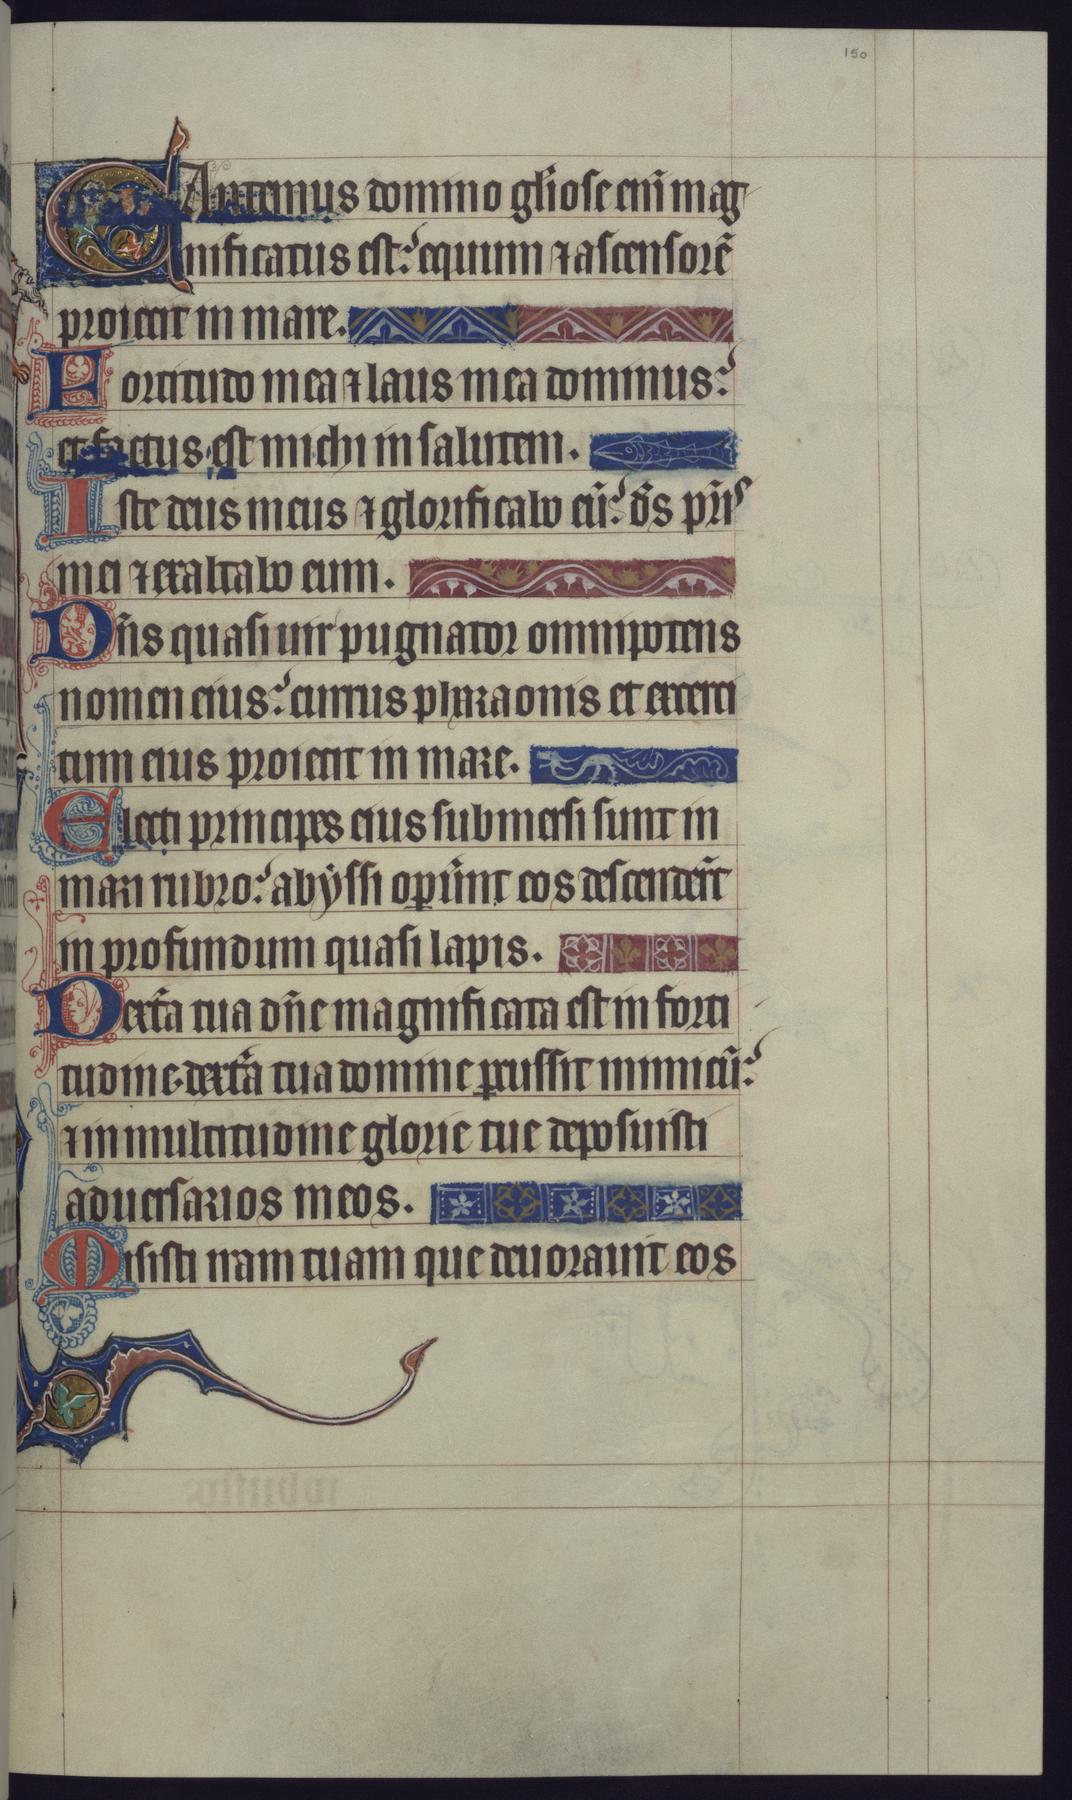 150
CAntemus domino gl̄iose eni᷑ mag
nificatus est: equum ⁊ ascensorē
proiecit in mare.
Fortitudo mea ⁊ laus mea dominus:
et factus est michi in salutem.
Iste deus meus ⁊ glorificabo eū: ds̄ pr̄is
mei ⁊ exaltabo eum.
Dn̄s quasi uir pugnator omnipotens
nomen eius: currus pharaonis et exerci
tum eius proiecit in mare.
Electi principes eius submersi sunt in
mari rubro: abyssi opūnt eos descendert̄
in profundum quasi lapis.
Dext̄a tua dn̄e magnificata est in forti
tudine dext̄a tua domine ꝑcussit inimicū:
⁊ in multitudine glorie tue deposuisti
aduersarios meos.
Misisti iram tuam que deuorauit eos